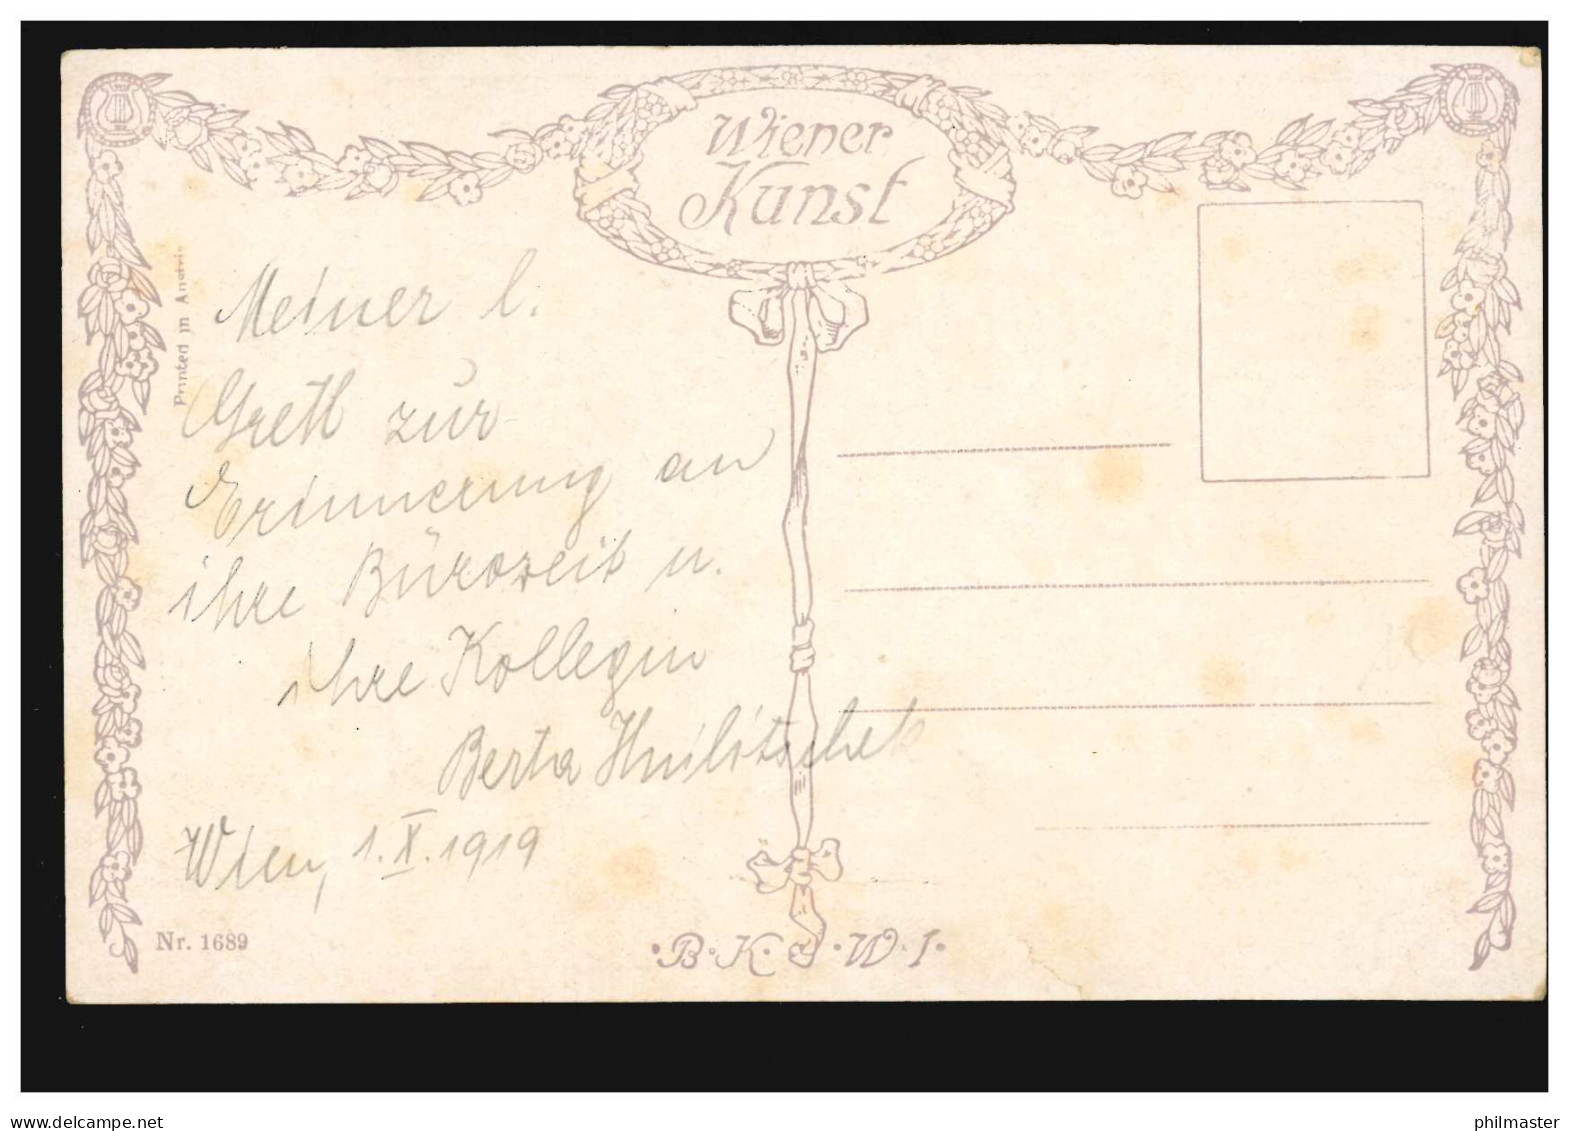 Wiener
Kunst
Printed in Austria
Meiner l.
Gretl zur
Erinnerung an
ihre Bürozeit u.
ihre Kollegin
Berta
Wien, 1.X.1919
Nr. 1689
·B·K·W·I·
www.delcampe.net
philmaster